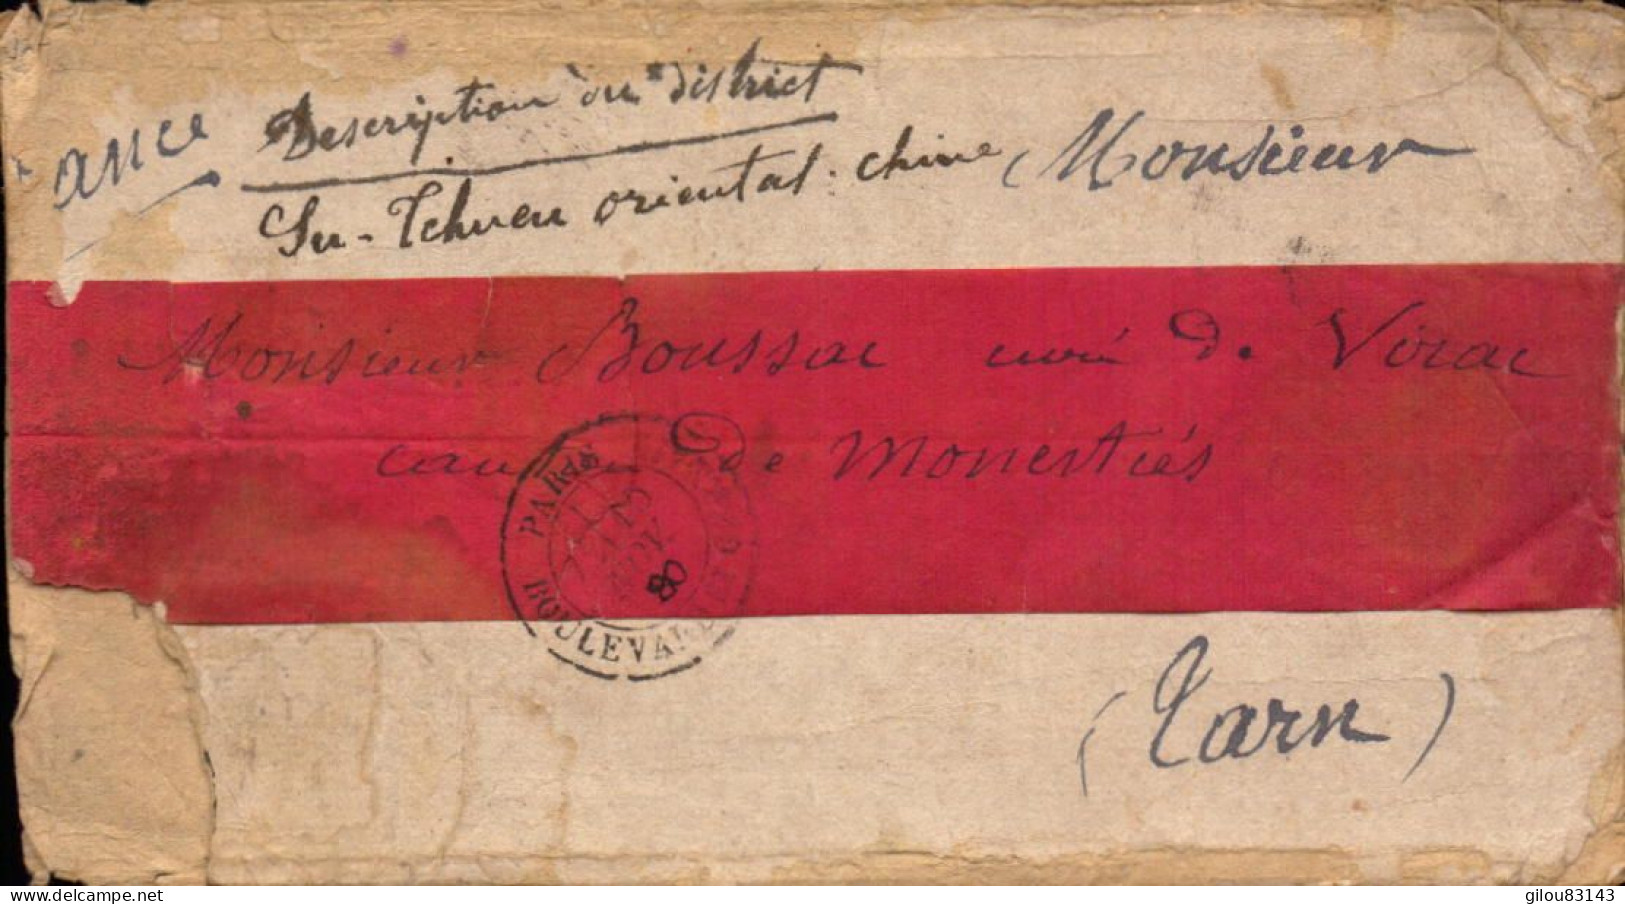 ance Description du district
Su-Tchuen oriental. Chine
Monsieur
Monsieur Boussac curé de Virac
canton de Monestiés
(Tarn)
PARIS
BOULEVARD
08
delcampe.net
gilou83143